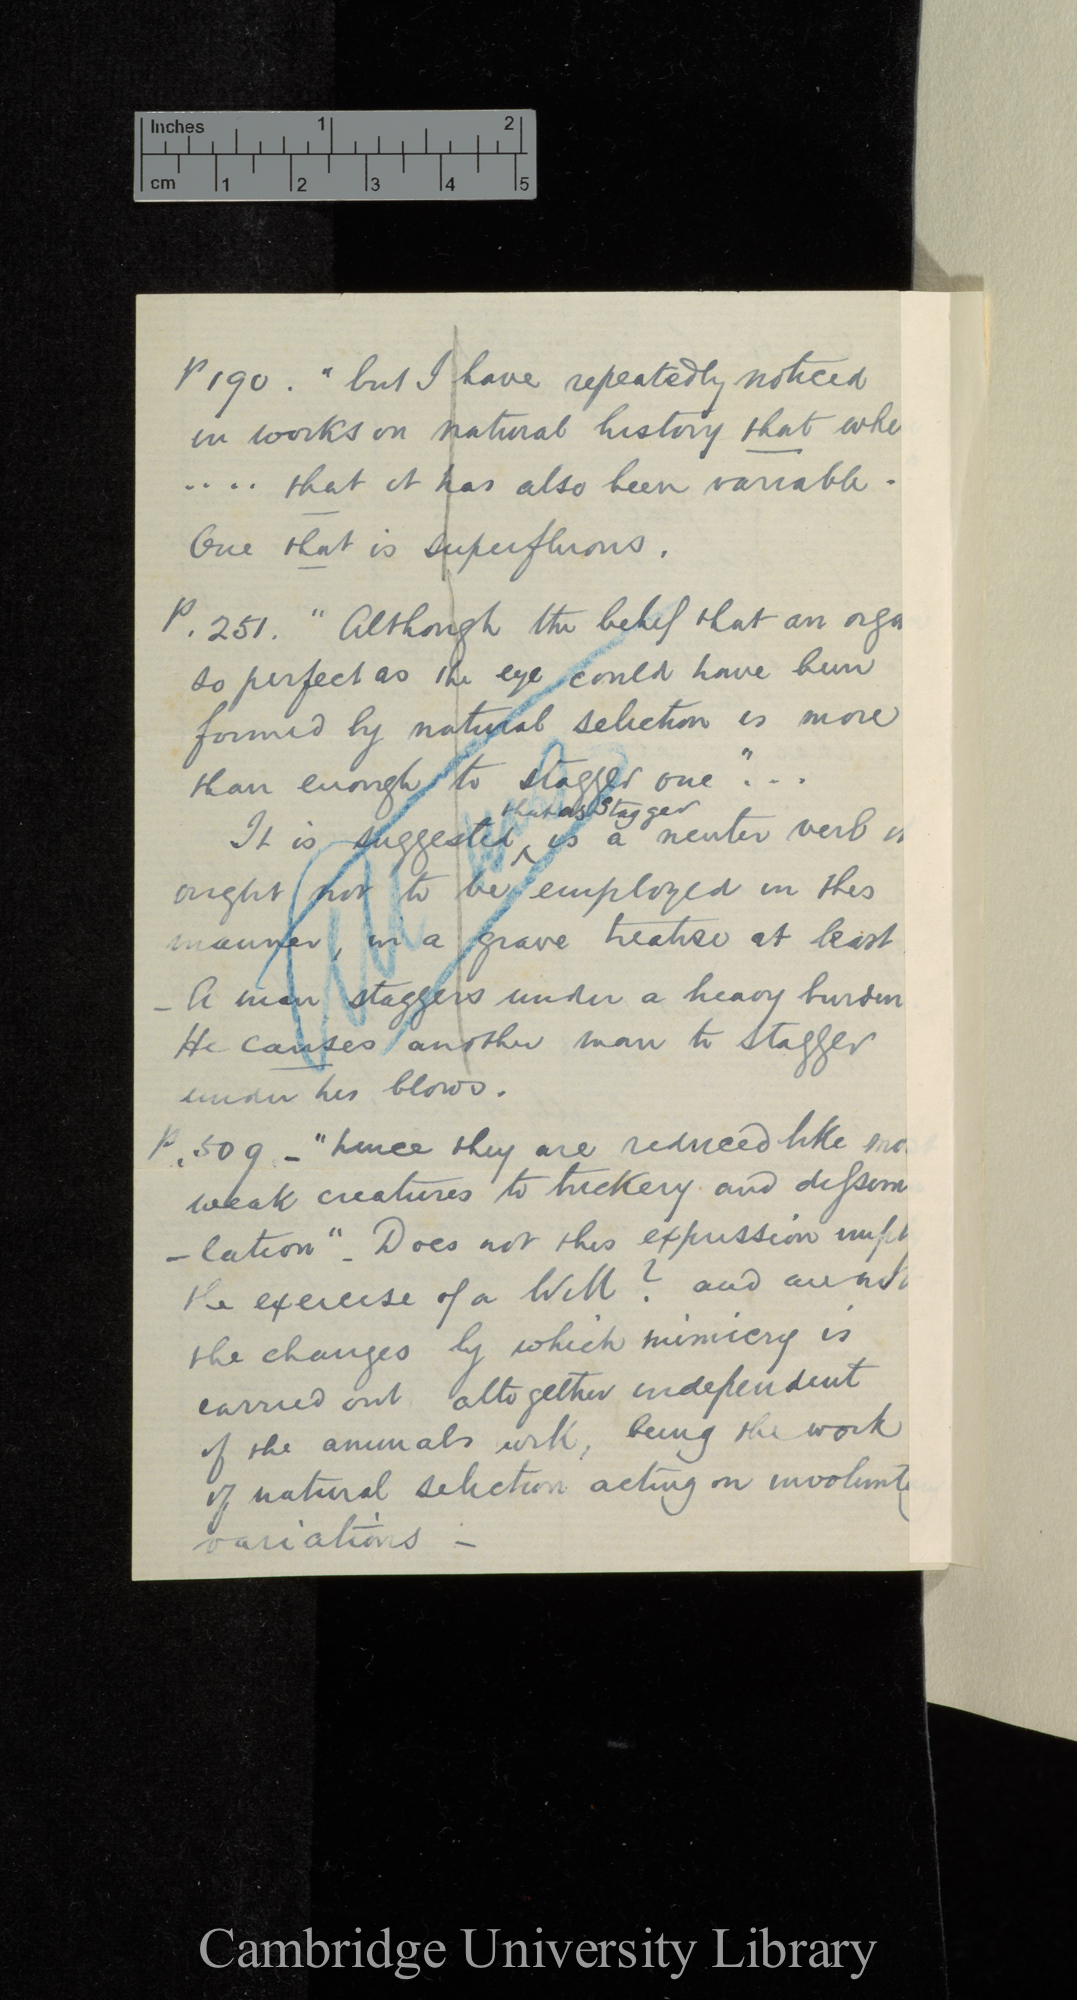 Inches 1 2
cm 1 2 3 4 5
P 190. "but I have repeatedly noticed
in works on natural history that whe
.... that it has also been variable.
One that is superfluous.
P. 251. "Although the belief that an orga
so perfect as the eye could have been
formed by natural selection is more
than enough to stagger one"...
that as Stagger
It is suggested ‸ is a neuter verb it
ought not to be employed in this
manner, in a grave treatise at least
- A man staggers under a heavy burden
He causes another man to stagger
under his blows.
P. 509 - "hence they are reduced like mo
weak creatures to trickery and dissim
-lation" - Does not this expression imp
the exercise of a Will? and are not
the changes by which mimicry is
carried out altogether independent
of the animals will, being the work
of natural selection acting on involunta
variations -
Cambridge University Library